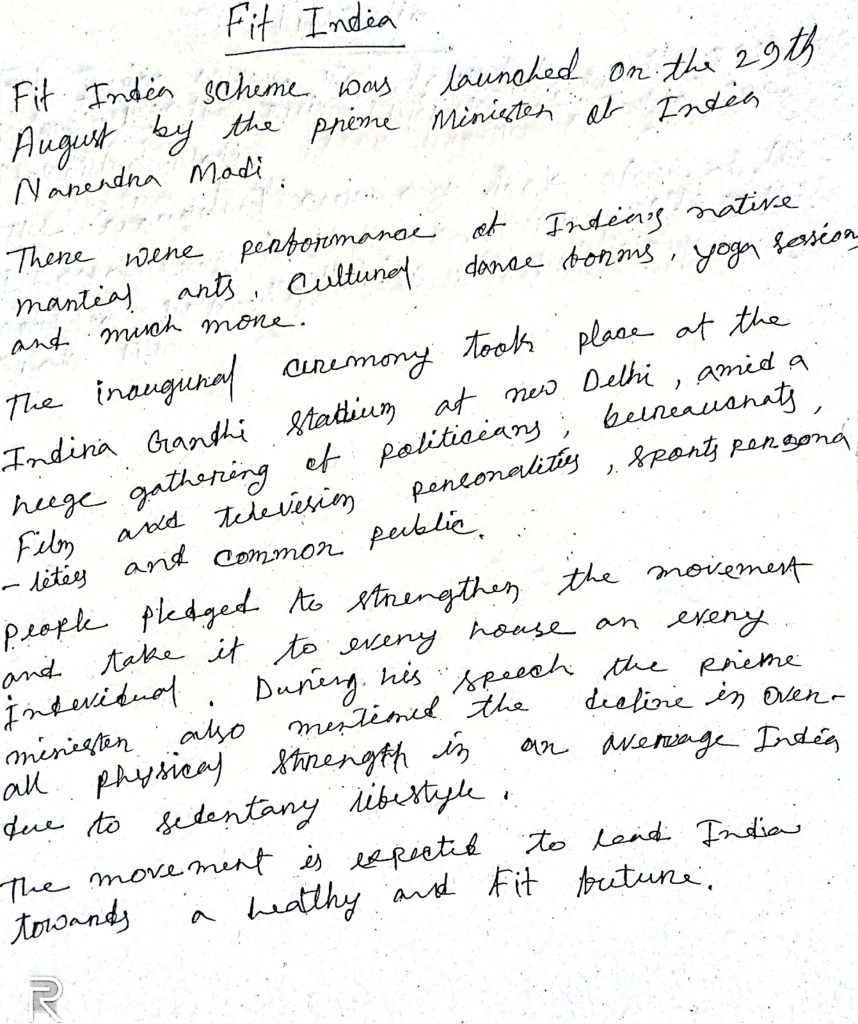 Fit India
Fit India scheme was launched on the 29th
August by the prime Minister of India
Narendra Modi.
There were performance of India's native
martial arts, cultural dance forms, yoga session
and much more.
The inaugural ceremony took place at the
Indira Gandhi Stadium at new Delhi, amid a
huge gathering of politicians, beureausrats,
Film and television personalities, sports persona
- lities and common public.
people pledged to strengthen the movement
and take it to every house an every
individual. During his speech the prime
minister also mentioned the decline in over-
all physical strength in an average India
due to sedentary lifestyle.
The movement is expected to lead India
towards a healthy and Fit future.
R